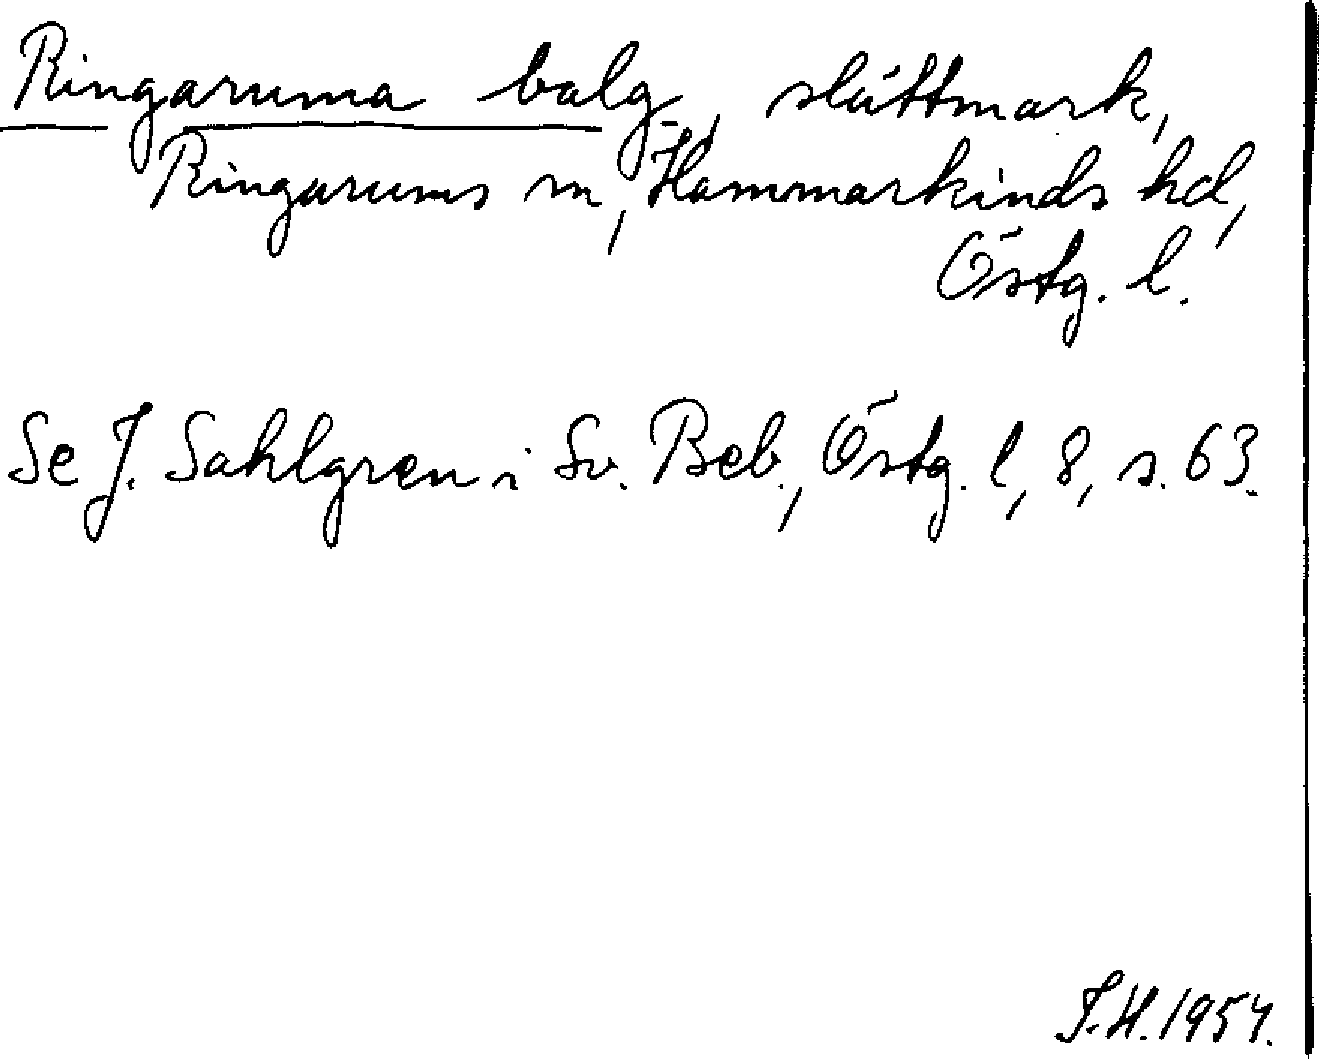 Ringaruma balg, slåttmark,
Ringarums sn, Hammarkinds hd,
Östg. l.
Se J. Sahlgren i Sv. Beb., Östg. l, 8, s. 63.
S.H. 1954.